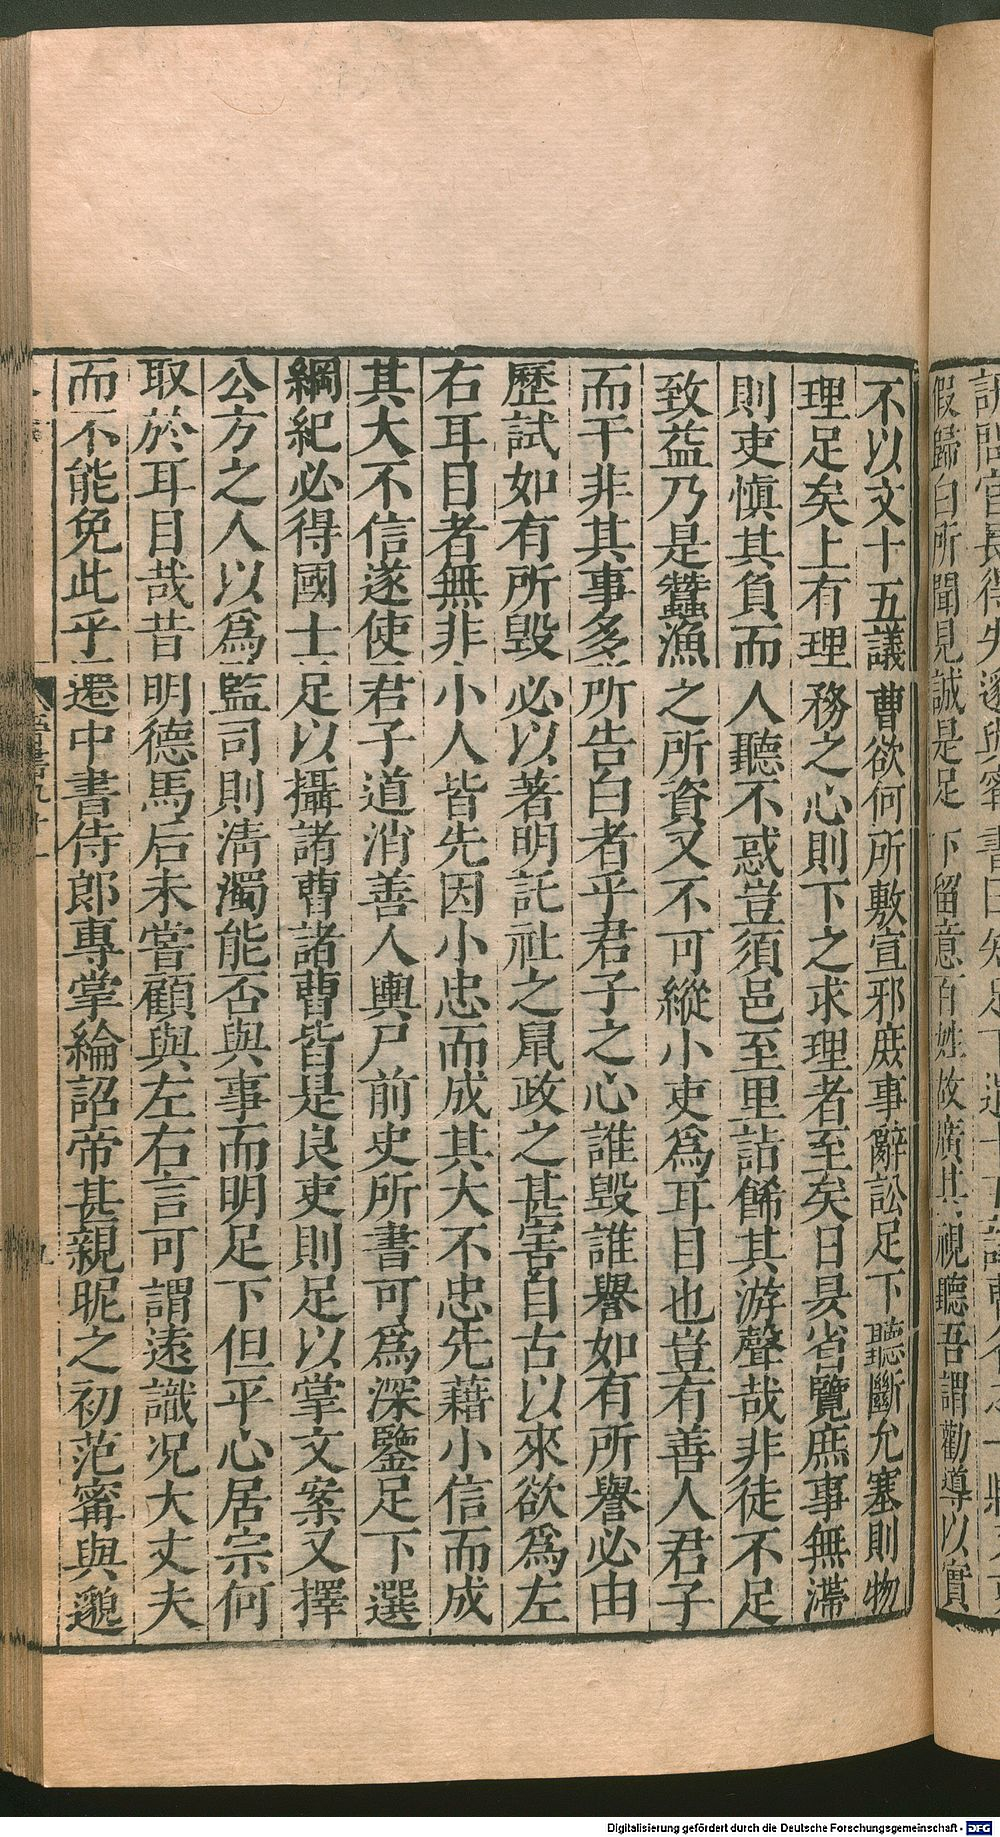 假歸白所聞見誠是足下留意百姓故廣其視聽吾謂勸導以實
不以文十五議曹欲何所敷宣邪庶事辭訟足下聽斷允塞則物
理足矣上有理務之心則下之求理者至矣日昃省覽庶事無滯
則吏慎其負而人聽不惑豈須邑至里詣餙其游聲哉非徒不足
致益乃是蠶漁之所資又不可縱小吏爲耳目也豈有善人君子
而干非其事多所告白者乎君子之心誰毀誰譽如有所譽必由
歷試如有所毀必以著明託社之鼠政之甚害自古以來欲爲左
右耳目者無非小人皆先因小忠而成其大不忠先藉小信而成
其大不信遂使君子道消善人輿尸前史所書可爲深鑒足下選
綱紀必得國士足以攝諸曹諸曹皆是良吏則足以掌文案又擇
公方之人以爲監司則淸濁能否與事而明足下但平心居宗何
取於耳目哉昔明德馬后未嘗顧與左右言可謂遠識况大丈夫
而不能免此乎遷中書侍郎專掌綸詔帝甚親昵之初范甯與邈
Digitalisierung gefördert durch die Deutsche Forschungsgemeinschaft - DFG